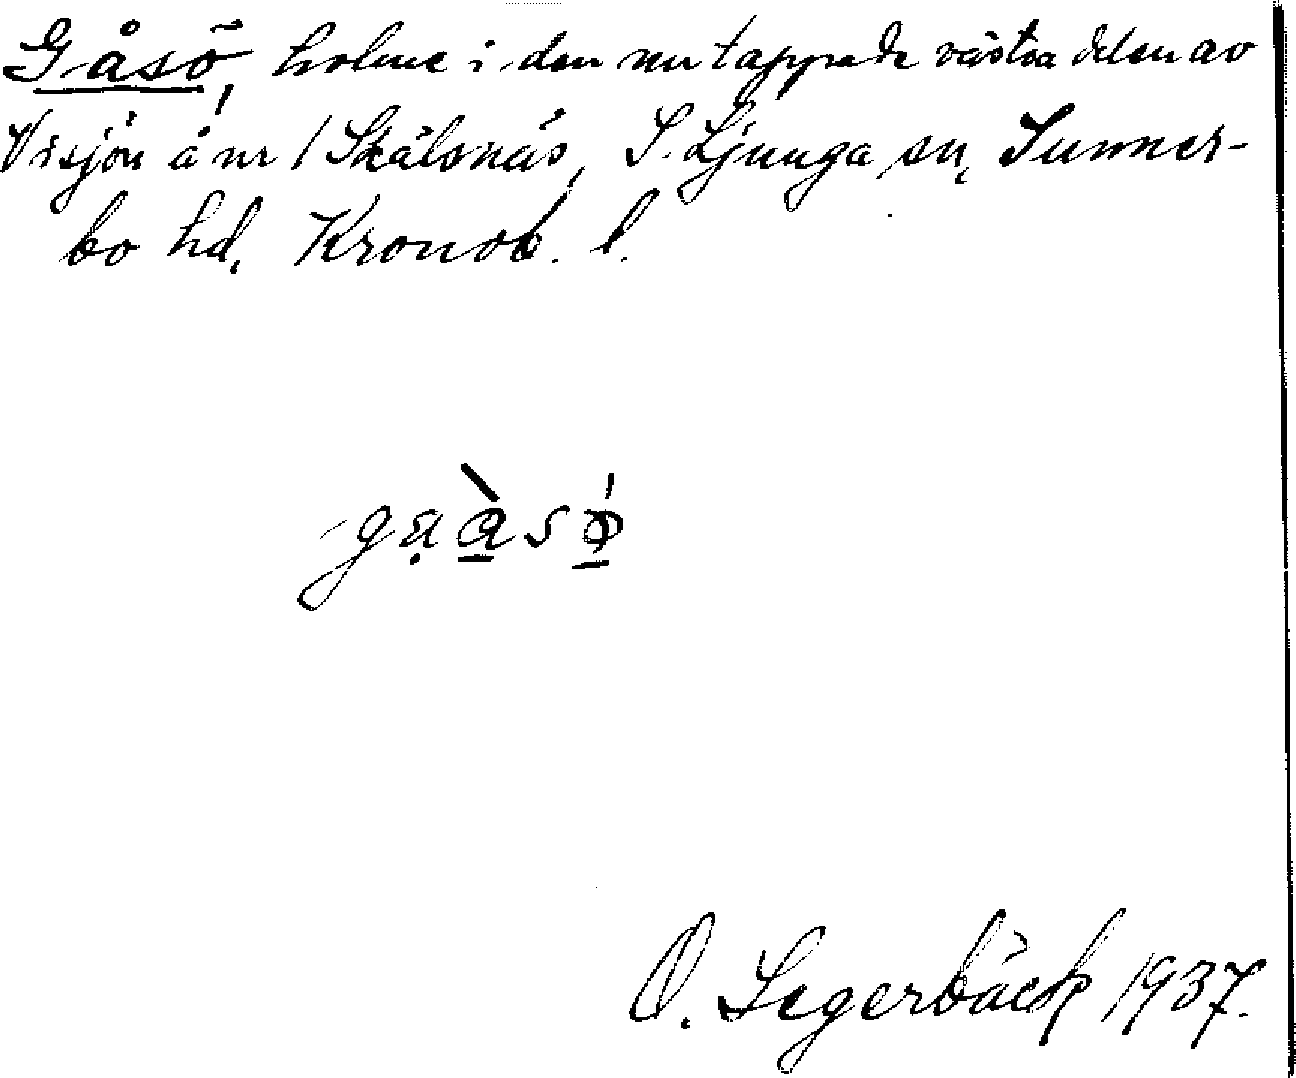 Gåsö, holme i den nu tappade västra delen av
Visjön å nr 1 Skålsnäs, S. Ljunga sn, Sunner-
bo hd, Kronob. l.
O. Segerbäck 1937.